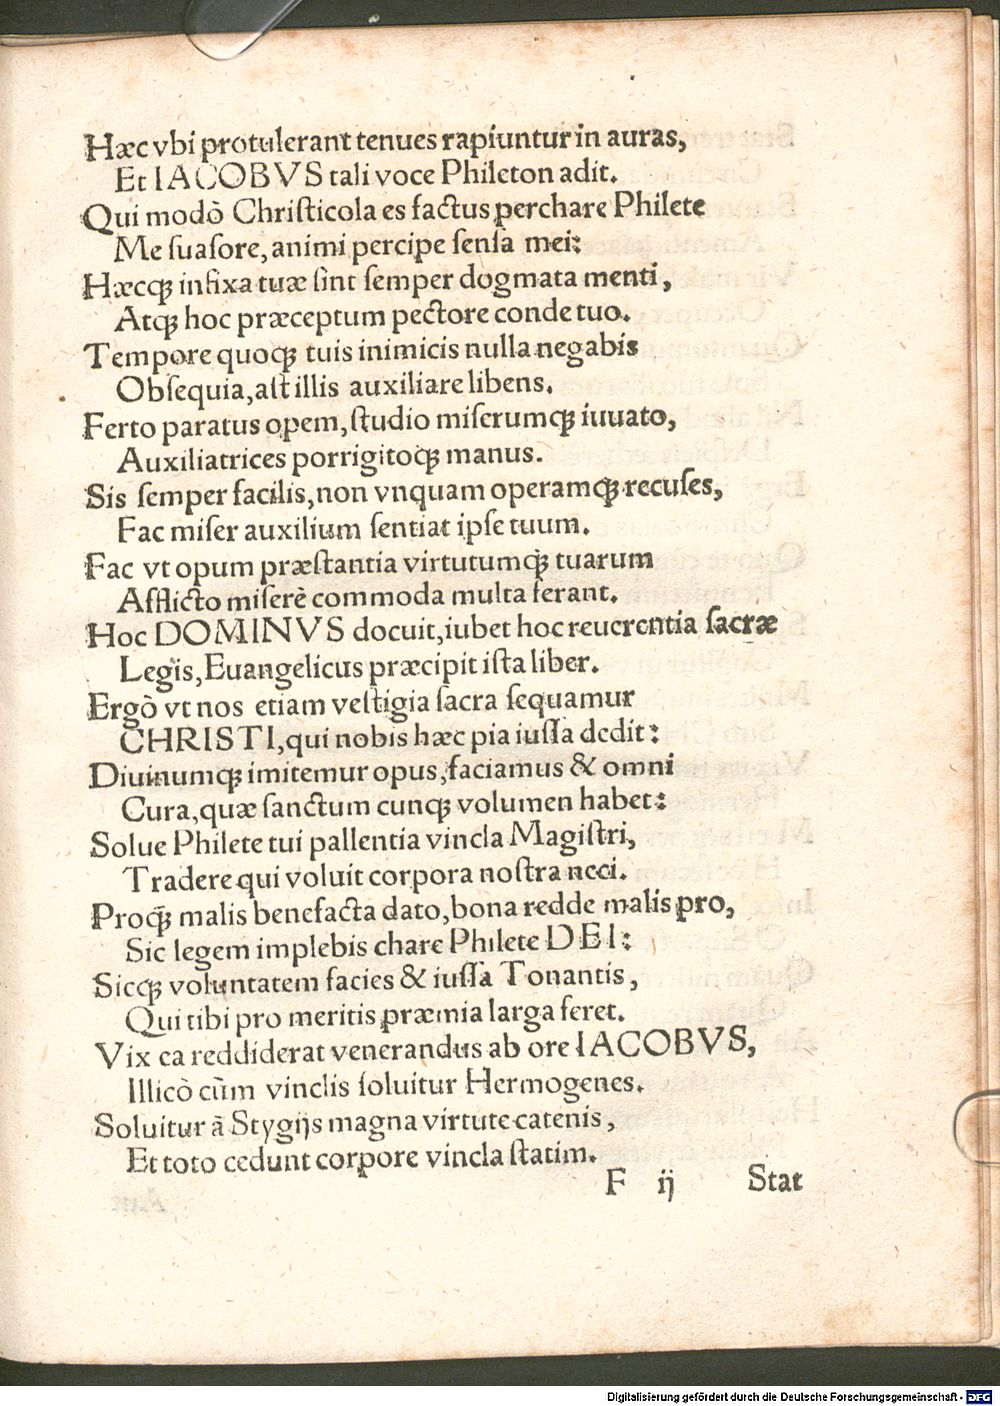 Hæc vbi protulerant tenues rapiuntur in auras,
Et IACOBVS tali voce Phileton adit.
Qui modò Chriſticola es factus perchare Philete
Me ſuaſore, animi percipe ſenſa mei:
Hæcꝗ infixa tuæ ſint ſemper dogmata menti,
Atꝗ hoc præceptum pectore conde tuo.
Tempore quoꝗ tuis inimicis nulla negabis
Obſequia, aſt illis auxiliare libens.
Ferto paratus opem, ſtudio miſerumꝗ iuuato,
Auxiliatrices porrigitoꝗ manus.
Sis ſemper facilis, non vnquam operamꝗ recuſes,
Fac miſer auxilium ſentiat ipſe tuum.
Fac vt opum præſtantia virtutumꝗ tuarum
Afflicto miſerè commoda multa ferant.
Hoc DOMINVS docuit, iubet hoc reuerentia ſacræ
Legis, Euangelicus præcipit iſta liber.
Ergò vt nos etiam veſtigia ſacra ſequamur
CHRISTI, qui nobis hæc pia iuſſa dedit:
Diuinumꝗ imitemur opus, faciamus & omni
Cura, quæ ſanctum cunꝗ volumen habet:
Solue Philete tui pallentia vincla Magiſtri,
Tradere qui voluit corpora noſtra neci.
Proꝗ malis benefacta dato, bona redde malis pro,
Sic legem implebis chare Philete DEI:
Sicꝗ voluntatem facies & iuſſa Tonantis,
Qui tibi pro meritis præmia larga feret.
Vix ea reddiderat venerandus ab ore IACOBVS,
Illicò cùm vinclis ſoluitur Hermogenes.
Soluitur à Stygijs magna virtute catenis,
Et toto cedunt corpore vincla ſtatim.
F ij Stat
Digitalisierung gefördert durch die Deutsche Forschungsgemeinschaft - DFG